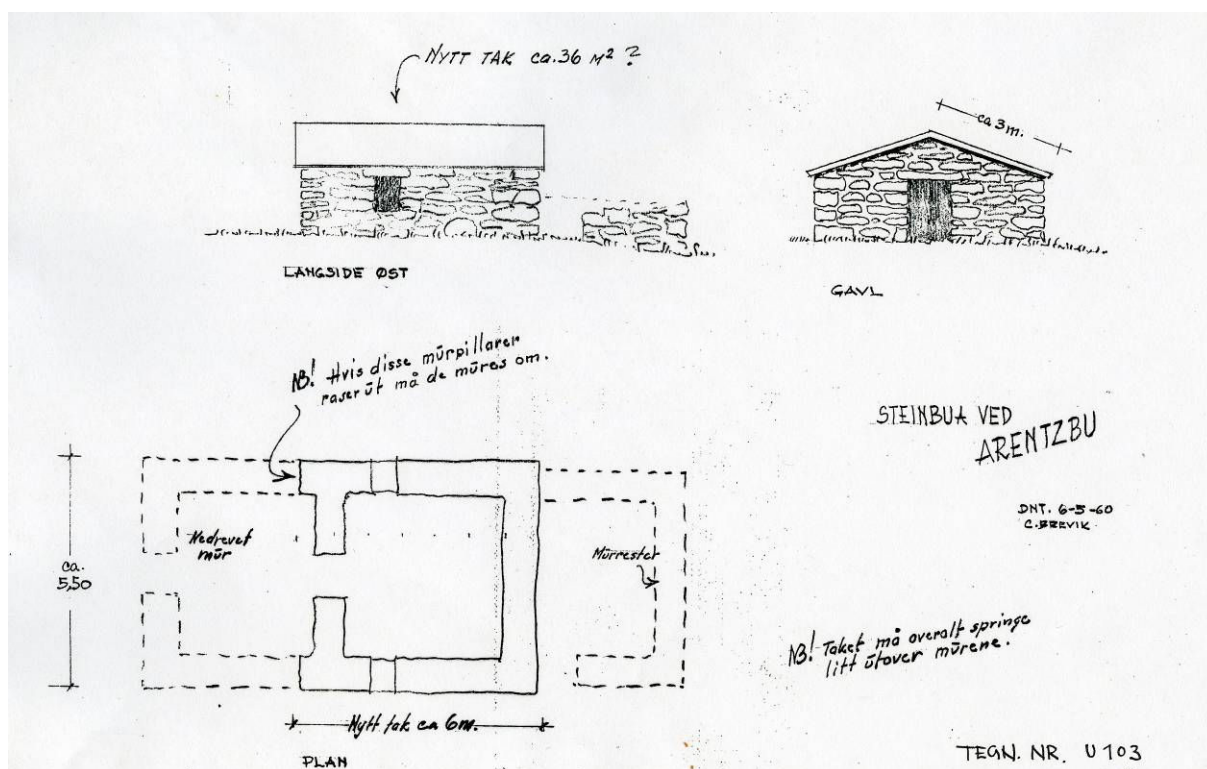 NYTT TAK ca. 36 M² ?
ca 3 m.
LANGSIDE ØST
GAVL
NB! Hvis disse mūrpillarer
raser ūt må de mūres om.
STEINBUA VED
ARENTZBU
DNT. 6-5-60
C. BREVIK
Nedrevet
mūr
Mūrrester
ca.
5,50
NB! Taket må overalt springe
litt ūtover mūrene.
Nytt tak ca 6m.
PLAN
TEGN. NR. U 103